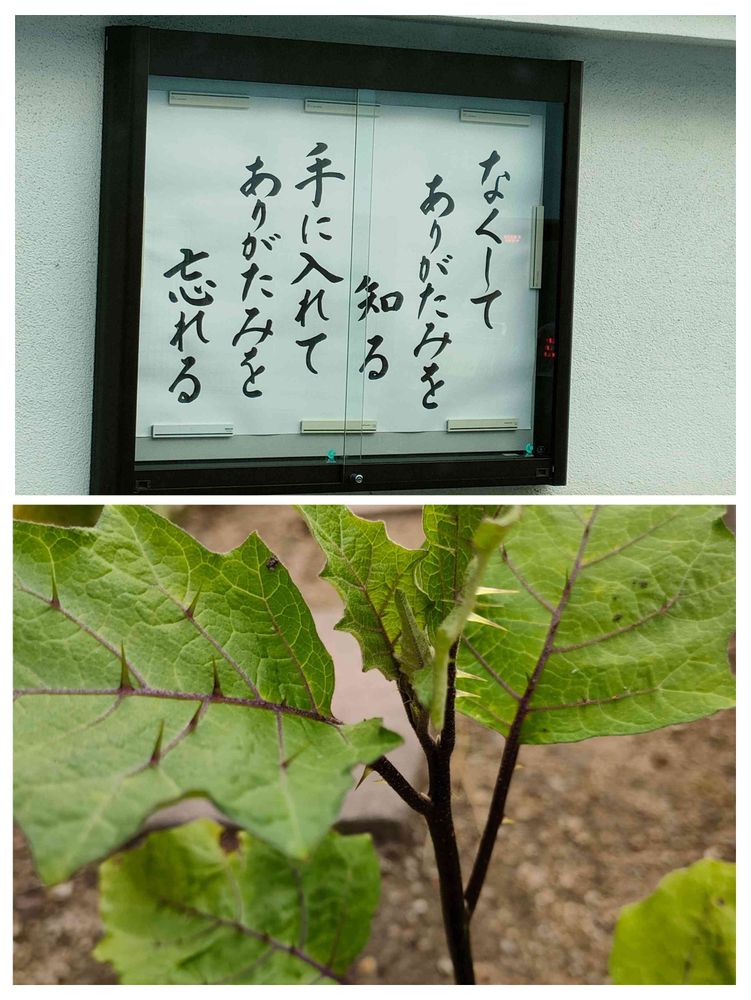 なくして
ありがたみを
知る
手に入れて
ありがたみを
忘れる